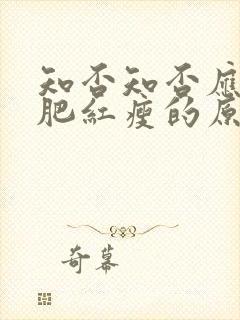 知否知否應
肥紅瘦的原
奇幕